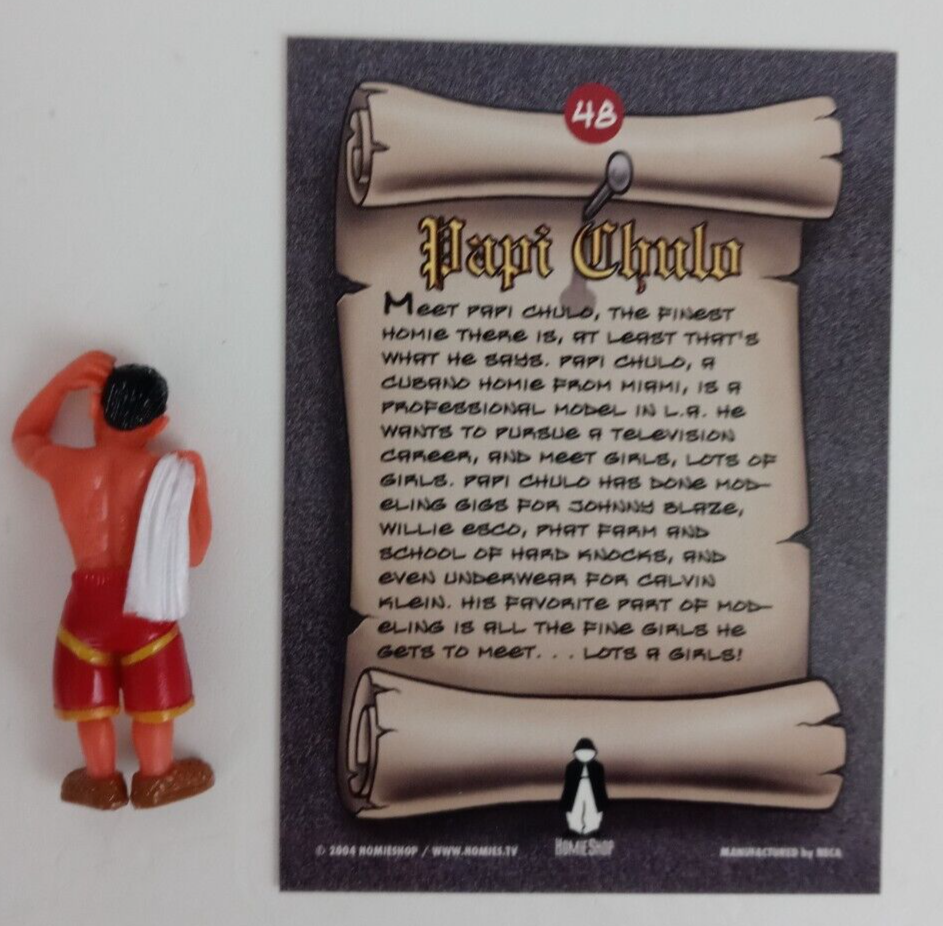 48
Papi Chulo
MEET PAPI CHULO, THE FINEST
HOMIE THERE IS, AT LEAST THAT'S
WHAT HE SAYS. PAPI CHULO, A
CUBANO HOMIE FROM MIAMI, IS A
PROFESSIONAL MODEL IN L.A. HE
WANTS TO PURSUE A TELEVISION
CAREER, AND MEET GIRLS, LOTS OF
GIRLS. PAPI CHULO HAS DONE MOD-
ELING GIGS FOR JOHNNY BLAZE,
WILLIE ESCO, PHAT FARM AND
SCHOOL OF HARD KNOCKS, AND
EVEN UNDERWEAR FOR CALVIN
KLEIN. HIS FAVORITE PART OF MOD-
ELING IS ALL THE FINE GIRLS HE
GETS TO MEET. . . LOTS A GIRLS!
HOMIESHOP
© 2004 HOMIESHOP / WWW.HOMIES.TV
MANUFACTURED by NECA